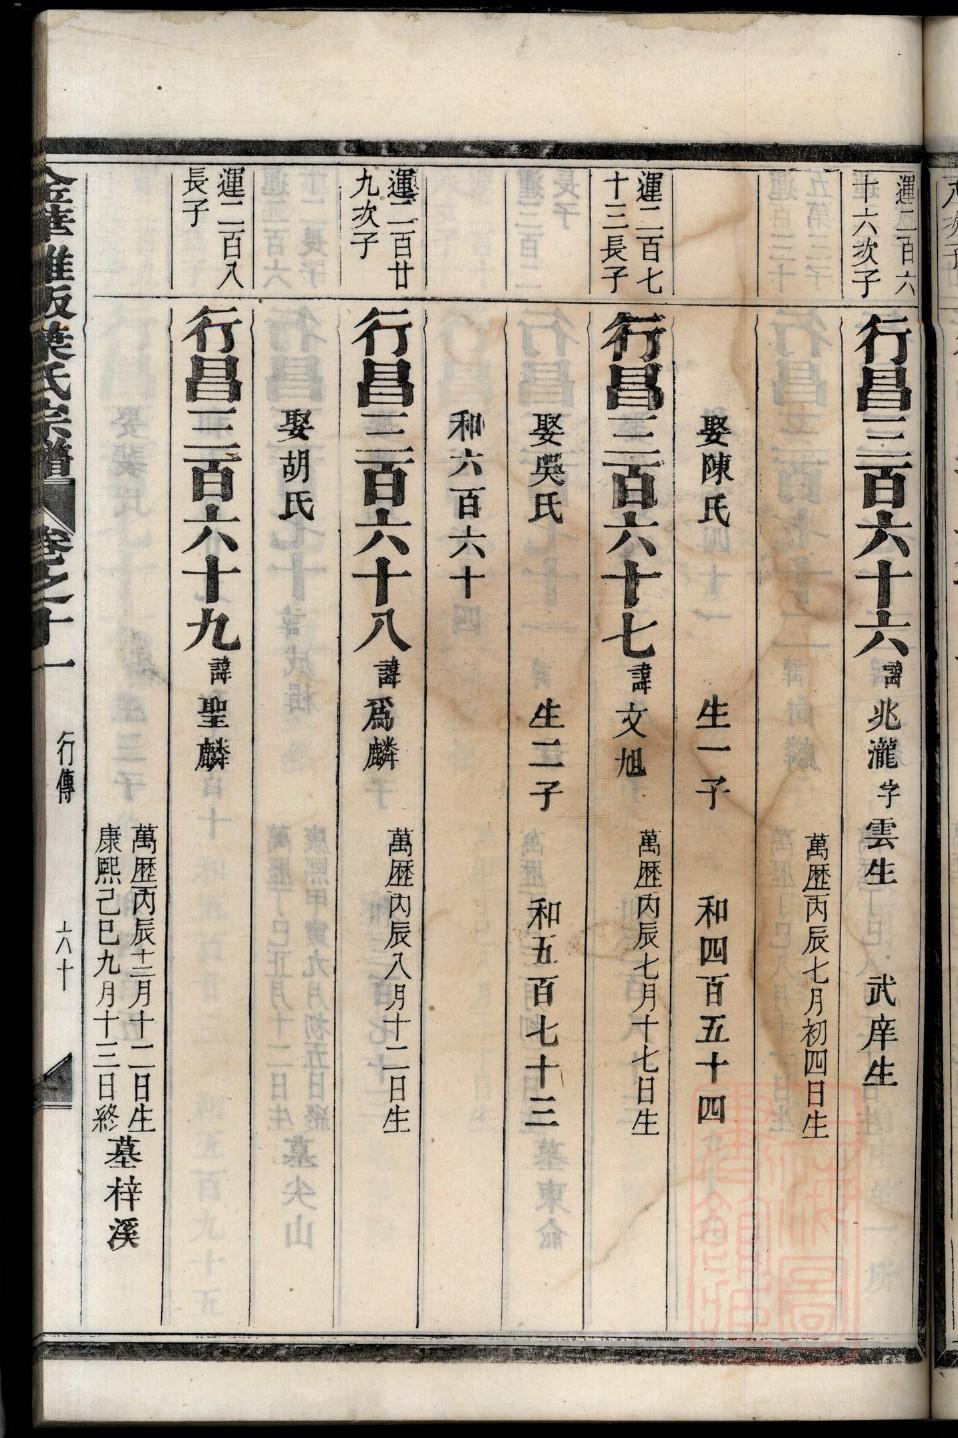 運二百六
十六次子
行昌三百六十六 諱兆瀧字雲生 武庠生
萬歷丙辰七月初四日生
娶陳氏 生一子 和四百五十四
運二百七
十三長子
行昌三百六十七 諱文旭
萬歷丙辰七月十七日生
娶吳氏 生二子 和五百七十三
和六百六十
運二百廿
九次子
行昌三百六十八 諱爲麟
萬歷丙辰八月十二日生
娶胡氏
運二百八
長子
行昌三百六十九 諱聖麟
萬歷丙辰十二月十二日生
康熙己巳九月十三日終
墓梓溪
葉氏宗譜 卷之十一 行傳 六十